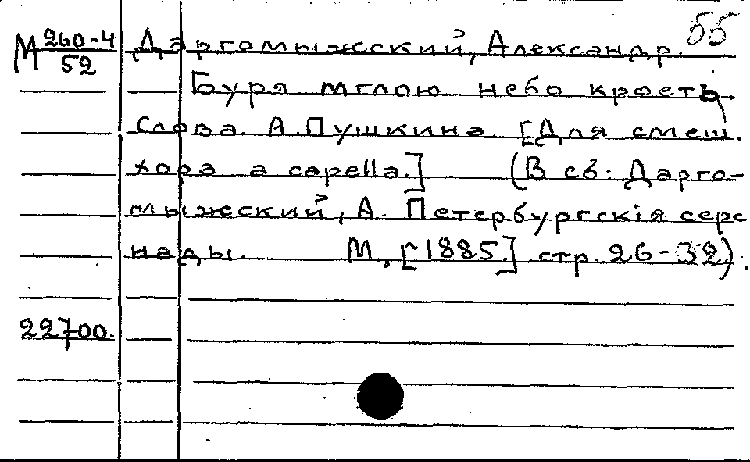 55
М 260-4/52 Даргомыжский, Александр.
Буря мглою небо кроетъ,
Слова А. Пушкина. [Для смеш.
хора a capella.] (В сб. Дарго-
мыжский, А. Петербургскія сере
нады. М. [1885.] стр. 26-32).
22700.